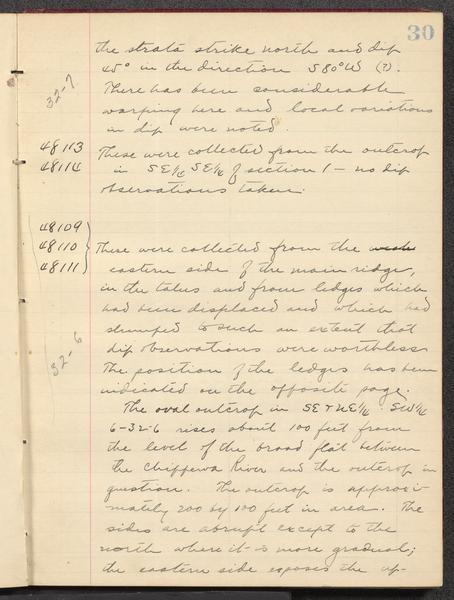 30
the strata strike north and dip
32-7
45° in the direction S80°W (?).
There has been considerable
warping here and local variations
in dip were noted.
48113
48114
These were collected from the outcrop
in SE1/16 SE1/16 of section 1 — no dip
observations taken.
48109
48110
48111
These were collected from the
eastern side of the main ridge,
in the talus and from ledges which
had been displaced and which had
slumped to such an extent that
dip observations were worthless
32-6
The position of the ledges has been
indicated on the opposite page.
The oval outcrop in SE & NE1/16 SW1/16
6-32-6 rises about 100 feet from
the level of the broad flat between
the Chippewa River and the outcrop in
question. The outcrop is approxi-
mately 200 by 100 feet in area. The
sides are abrupt except to the
north where it is more gradual;
the eastern side exposes the up-